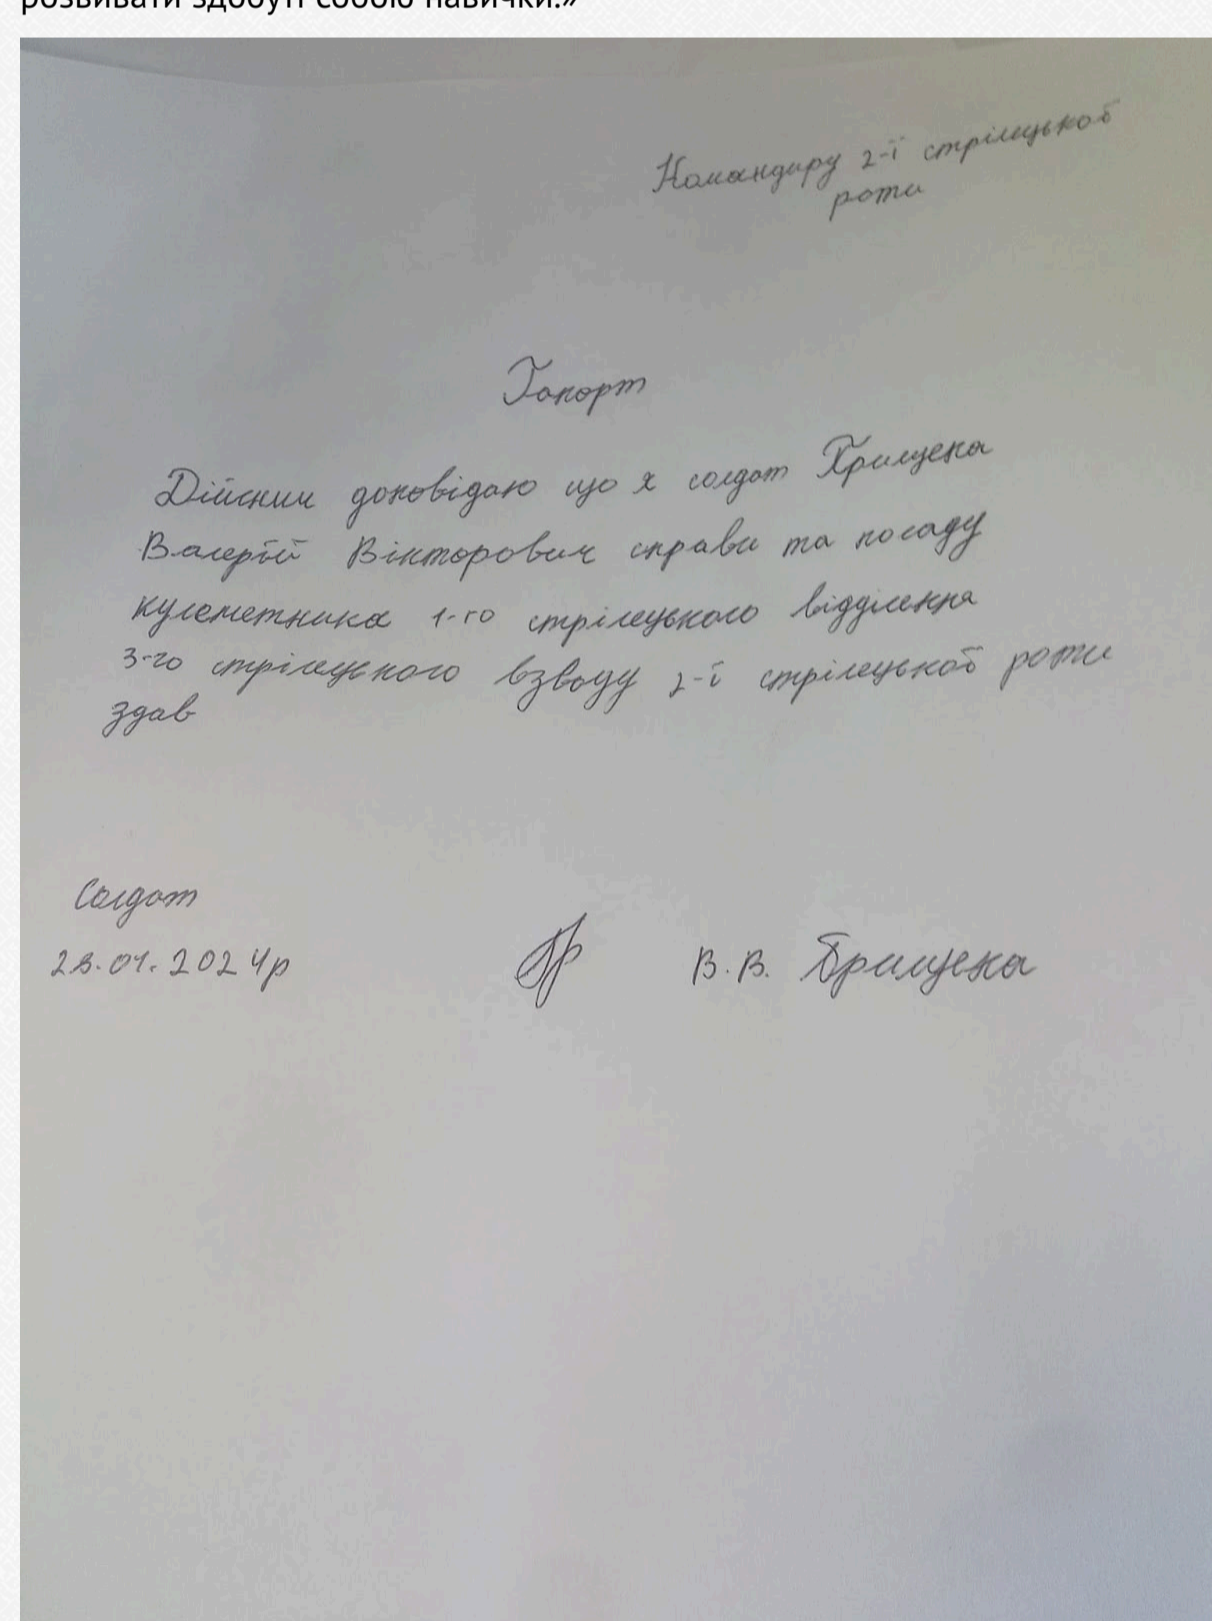 розвивати здобуті собою навички.»
Командиру 2-ї стрілецької
роти
Рапорт
Дійсним доповідаю що я солдат Грищека
Валерій Вікторович справи та посаду
кулеметника 1-го стрілецького відділення
3-го стрілецького взводу 2-ї стрілецької роти
здав
Солдат
23.01.2024р
В.В. Грищека